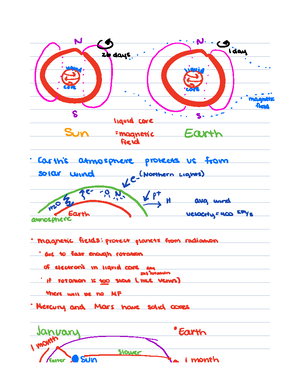 N N
26 days 1 day
liquid liquid
core core
magnetic
field
S S
liquid core
= magnetic
field
Sun Earth
Earth's atmosphere protects us from
solar wind (Northern Lights)
e-
e- O N2 P+
H2O H avg wind
velocity = 400 km/s
Earth
atmosphere
magnetic fields: protect planets from radiation
due to fast enough rotation
of electrons in liquid core
if rotation is too slow (like Venus)
there will be no MF
Mercury and Mars have solid cores
January Earth
1 month
slower
faster Sun 1 month